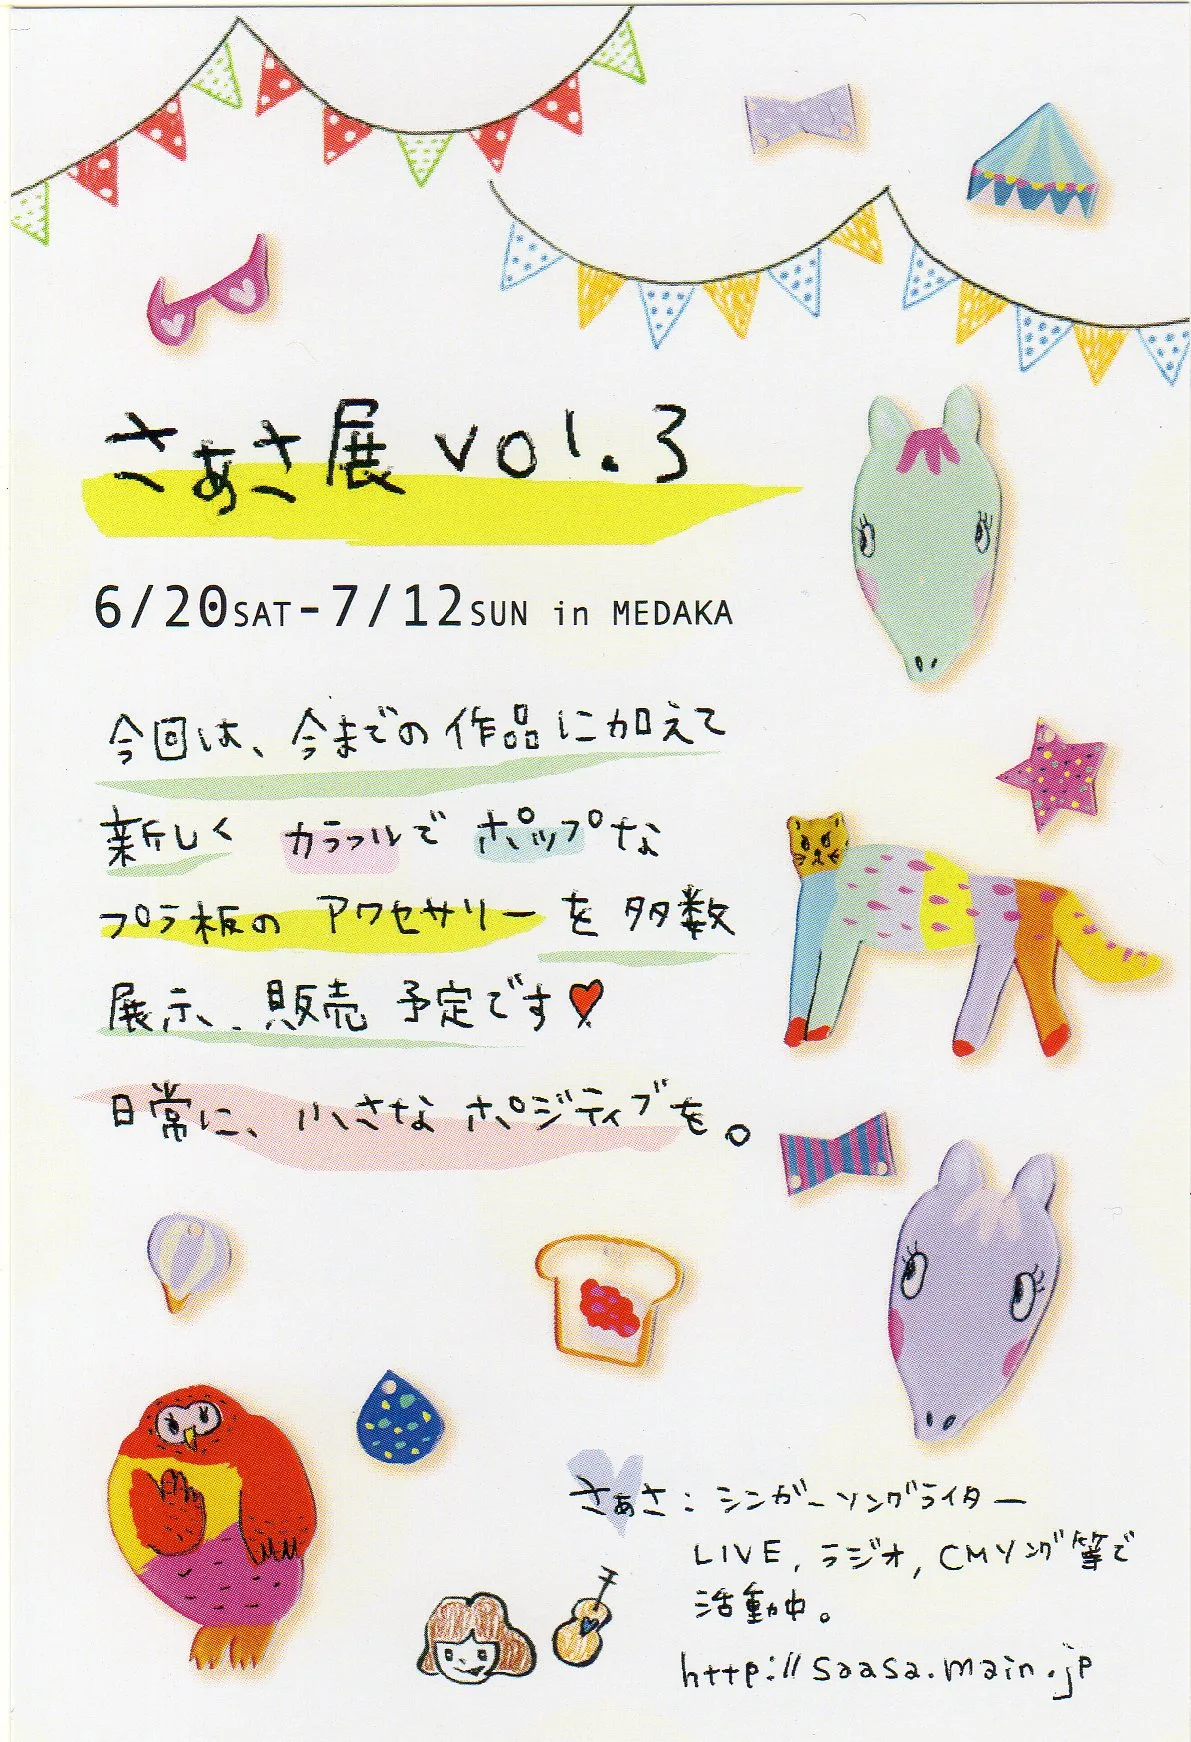 さぁさ展 vol.3
6/20SAT-7/12SUN in MEDAKA
今回は、今までの作品に加えて
新しく カラフルで ポップな
プラ板の アクセサリー を 多数
展示、販売 予定です♥
日常に、小さな ポジティブを。
さぁさ:シンガーソングライター
LIVE, ラジオ, CMソング等で
活動中。
http://saasa.main.jp